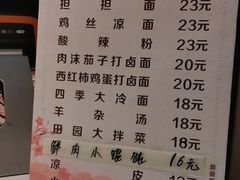 担担面 23元
鸡丝凉面 23元
酸辣粉 23元
肉沫茄子打卤面 20元
西红柿鸡蛋打卤面 20元
四季大冷面 18元
羊杂汤 18元
田园大拌菜 18元
鲜肉小馄饨 16元
凉皮